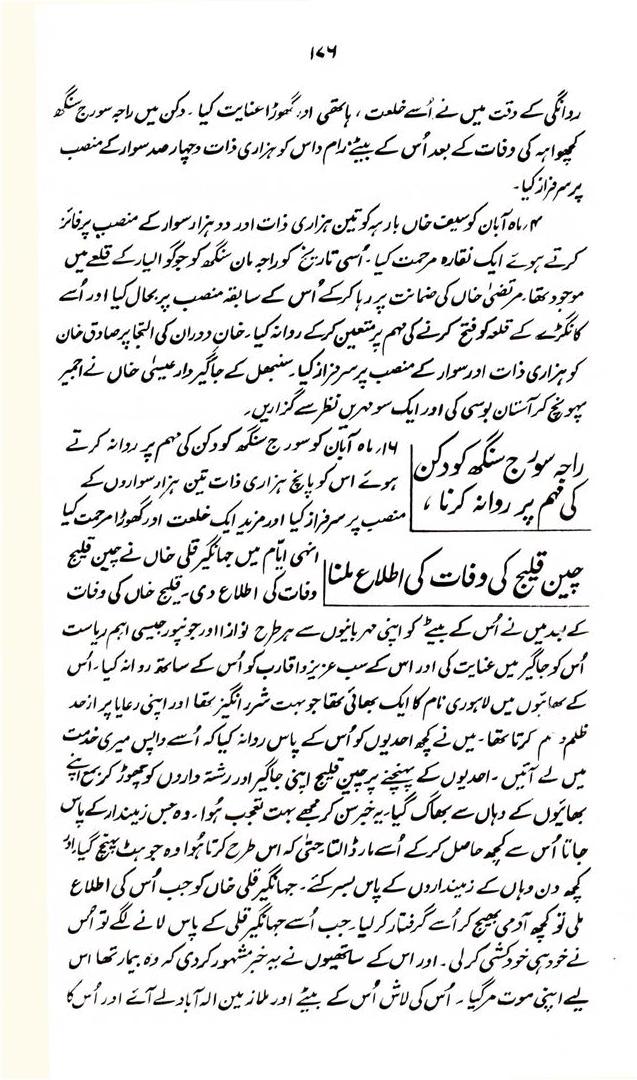 ۱۷۶
روانگی کے وقت میں نے اُسے خلعت ، ہاتھی اور گھوڑا عنایت کیا ۔ دکن میں راجہ سورج سنگھ
کچھواہہ کی وفات کے بعد اُس کے بیٹے رام داس کو ہزاری ذات و چہار صد سوار کے منصب
پر سرفراز کیا ۔
۴؍ ماہ آبان کو سیف خاں بارہہ کو تین ہزاری ذات اور دو ہزار سوار کے منصب پر فائز
کرتے ہوئے ایک نقارہ مرحمت کیا ۔ اُسی تاریخ کو راجہ مان سنگھ کو جو گوالیار کے قلعے میں
موجود تھا، مرتضیٰ خاں کی ضمانت پر رہا کر کے اُس کے سابقہ منصب پر بحال کیا اور اُسے
کانگڑے کے قلعہ کو فتح کرنے کی مہم پر متعین کر کے روانہ کیا۔ خان دوران کی التجا پر صادق خان
کو ہزاری ذات اور سوار کے منصب پر سرفراز کیا۔ سنبھل کے جاگیردار عیسیٰ خاں نے اجمیر
پہونچ کر آستان بوسی کی اور ایک سو مہریں نظر سے گزاریں۔
راجہ سورج سنگھ کو دکن
کی مہم پر روانہ کرنا ،
۱۶؍ ماہ آبان کو سورج سنگھ کو دکن کی مہم پر روانہ کرتے
ہوئے اس کو پانچ ہزاری ذات تین ہزار سواروں کے
منصب پر سرفراز کیا اور مزید ایک خلعت اور گھوڑا مرحمت کیا
چین قلیج کی وفات کی اطلاع ملنا
انہی ایام میں جہانگیر قلی خاں نے چین قلیج
وفات کی اطلاع دی۔ قلیج خاں کی وفات
کے بعد میں نے اُس کے بیٹے کو اپنی مہربانیوں سے ہر طرح نوازا اور جونپور جیسی اہم ریاست
اُس کو جاگیر میں عنایت کی اور اس کے سب عزیز و اقارب کو اُس کے ساتھ روانہ کیا۔ اُس
کے بھائیوں میں لاہوری نام کا ایک بھائی تھا جو بہت شرر انگیز تھا اور اپنی رعایا پر ازحد
ظلم و کرتا تھا۔ میں نے کچھ احدیوں کو اُس کے پاس روانہ کیا کہ اُسے واپس میری خدمت
میں لے آئیں ۔ احدیوں کے پہنچنے پر چین قلیج اپنی جاگیر اور رشتہ داروں کو چھوڑ کر مع اپنے
بھائیوں کے وہاں سے بھاگ گیا۔ یہ خبر سن کر مجھے بہت تعجب ہُوا۔ وہ جس زمیندار کے پاس
جاتا اُس سے کچھ حاصل کر کے اُسے مار ڈالتا حتیٰ کہ اس طرح کرتا ہُوا وہ جوہٹ پہنچ گیا اور
کچھ دن وہاں کے زمینداروں کے پاس بسر کئے۔ جہانگیر قلی خاں کو جب اُس کی اطلاع
ملی تو کچھ آدمی بھیج کر اُسے گرفتار کر لیا۔ جب اُسے جہانگیر قلی کے پاس لانے لگے تو اُس
نے خود ہی خودکشی کر لی ۔ اور اس کے ساتھیوں نے یہ خبر مشہور کر دی کہ وہ بیمار تھا اس
لیے اپنی موت مر گیا ۔ اُس کی لاش اُس کے بیٹے اور ملازمین الہ آباد لے آئے اور اُس کا